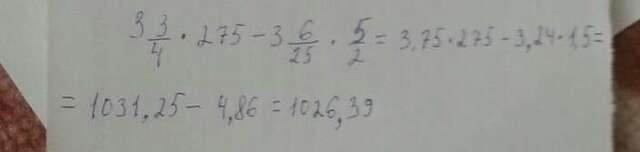 3 3/4 · 275 - 3 6/25 · 5/2 = 3,75 · 275 - 3,24 · 1,5 =
= 1031,25 - 4,86 = 1026,39